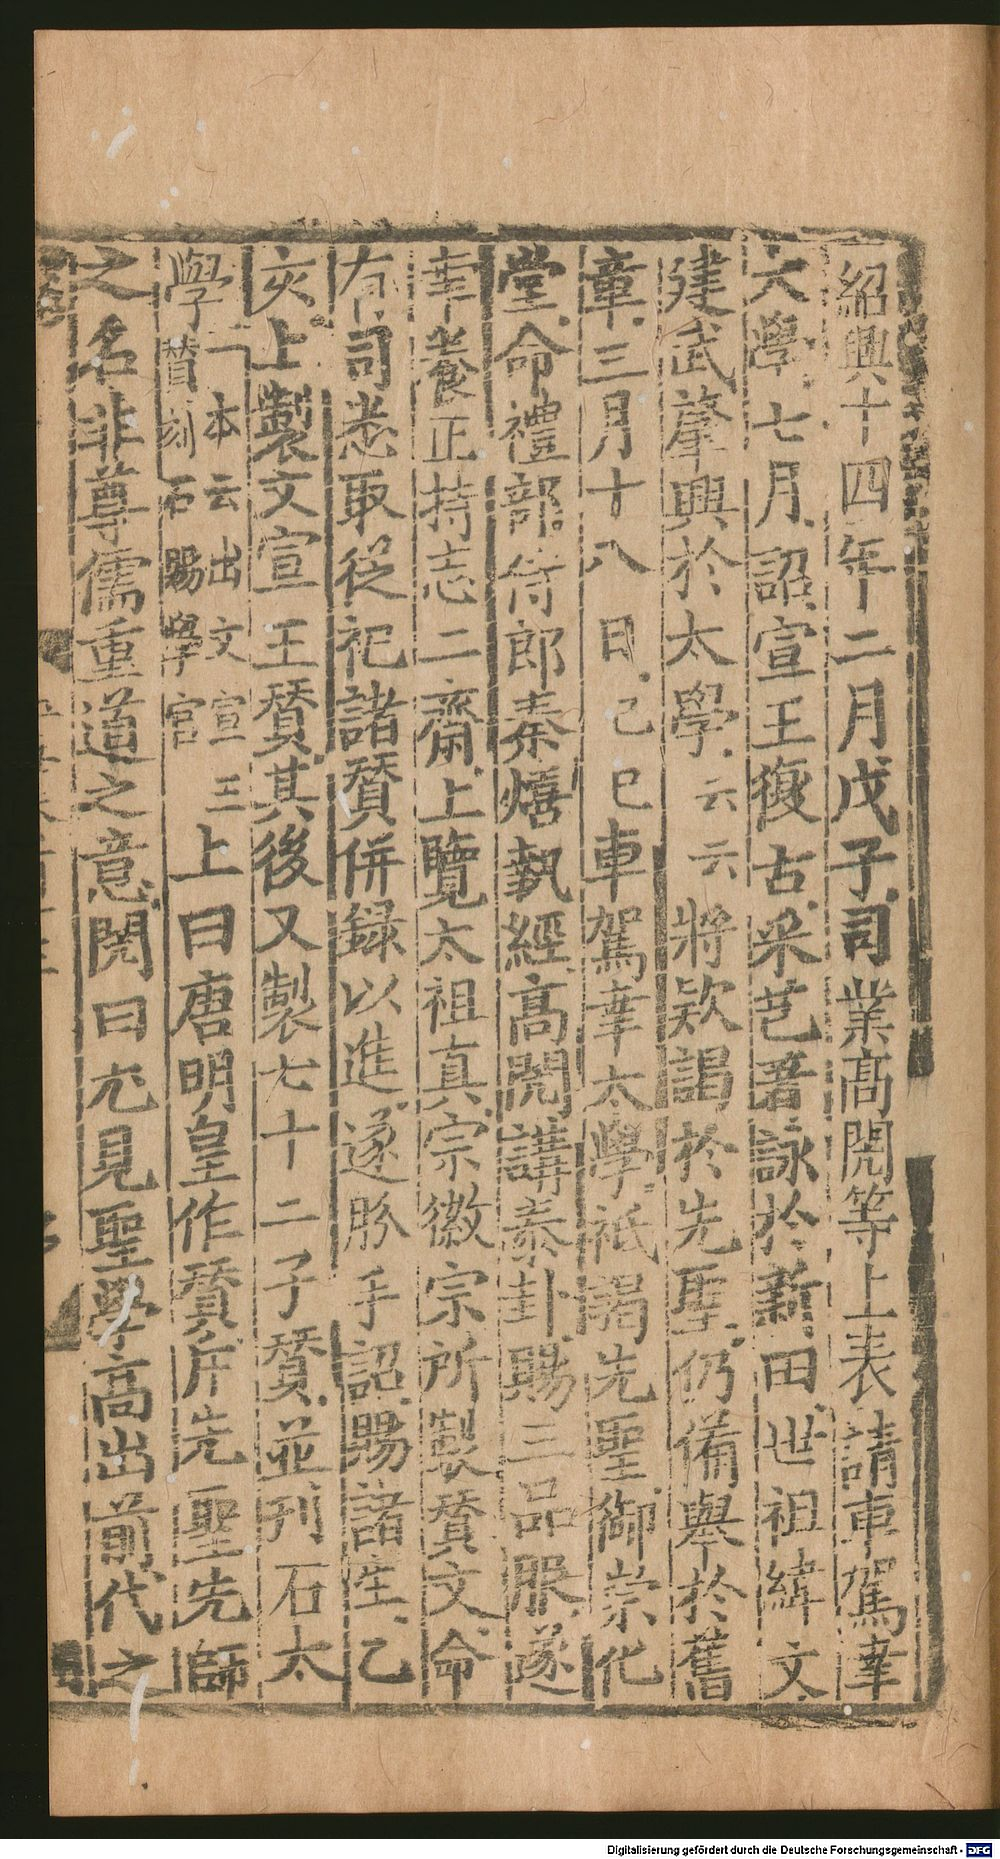 紹興十四年二月戊子司業髙閌等上表請車駕幸
太學七月詔宣王復古采芑著詠於新田世祖緯文
建武肇興於太學云云將欵謁於先聖仍備舉於舊
章三月十八日己巳車駕幸太學祗謁先聖御崇化
堂命禮部侍郎秦熺執經髙閌講泰卦賜三品服遂
幸養正持志二齋上覽太祖真宗徽宗所製賛文命
有司悉取從祀諸賛併録以進遂肦手詔賜諸生乙
亥上製文宣王賛其後又製七十二子賛並刊石太
學一本云出文宣三
賛刻石賜學官上曰唐明皇作賛斥先聖先師
之名非尊儒重道之意閌曰尢見聖學高出前代之
Digitalisierung gefördert durch die Deutsche Forschungsgemeinschaft - DFG